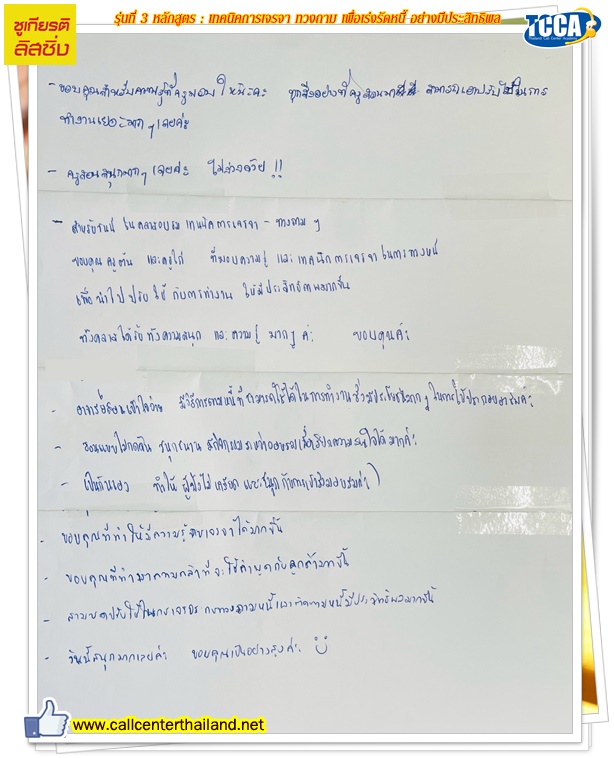 ชูเกียรติ
ลิสซิ่ง
รุ่นที่ 3 หลักสูตร : เทคนิคการเจรจา ทวงถาม เพื่อเร่งรัดหนี้ อย่างมีประสิทธิผล
TCCA
Thailand Call Center Academy
- ขอบคุณสำหรับความรู้ที่ครูมอบให้นะคะ ทุกสิ่งอย่างที่ครูสอนมา สามารถเอาปรับใช้ในการ
ทำงานเยอะมากๆเลยค่ะ
- ครูสอนสนุกมากๆ เลยค่ะ ไม่ง่วงด้วย !!
- สำหรับวันนี้ ในคลาสอบรม เทคนิคการเจรจา - ทวงถาม ๆ
ขอบคุณครูต้น และครูไก่ ที่มอบความรู้ และเทคนิคการเจรจาในการทวงหนี้
เพื่อนำไปปรับใช้กับการทำงาน ให้มีประสิทธิภาพมากขึ้น
ทั้งคลาสได้รับทั้งความสนุก และความรู้ มากๆ ค่ะ ขอบคุณค่ะ
- อาจารย์สอนเข้าใจง่าย มีวิธีการตามหนี้ที่สามารถใช้ได้ในการทำงานซึ่งมีประโยชน์มากๆ ในการใช้ประกอบอาชีพค่ะ
- สอนแบบไม่กดดัน สนุกสนาน มีกิจกรรมระหว่างอบรมเพื่อเรียกความสนใจได้มากค่ะ
- เป็นกันเอง ทำให้ ผู้ฟังไม่เครียด และสนุกกับการเข้าร่วมอบรมค่ะ
- ขอบคุณที่ทำให้มีความรู้การเจรจาได้มากขึ้น
- ขอบคุณที่ทำให้ความกล้าที่จะใช้คำพูดกับลูกค้ามากขึ้น
- สามารถปรับใช้ในการเจรจา การทวงถามหนี้และติดตามหนี้มีประสิทธิผลมากขึ้น
- วันนี้สนุกมากเลยค่ะ ขอบคุณเป็นอย่างสูงค่ะ
www.callcenterthailand.net